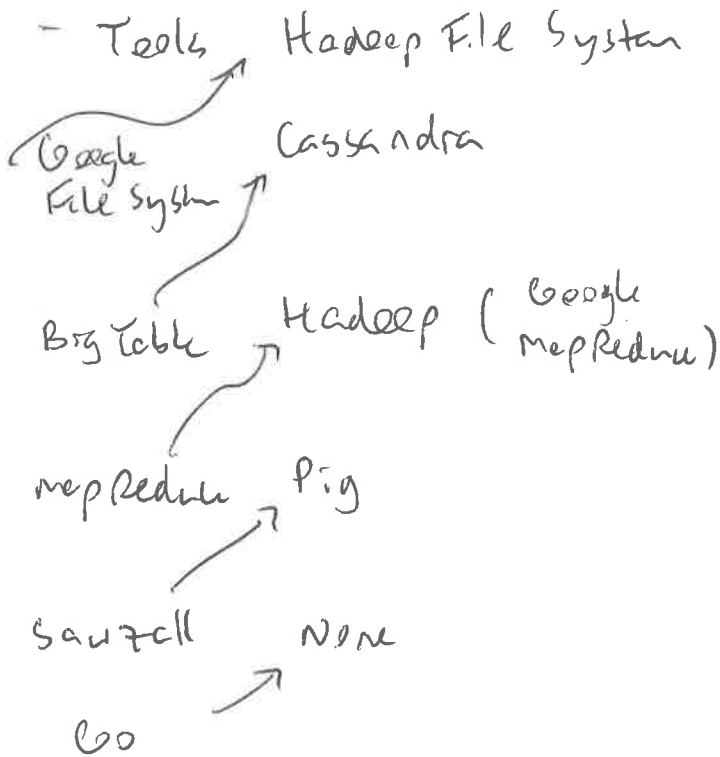 - Tools Hadoop File System
Google
File System
Cassandra
Big Table
Hadoop ( Google
MapReduce)
MapReduce
Pig
Sawzall
None
Go